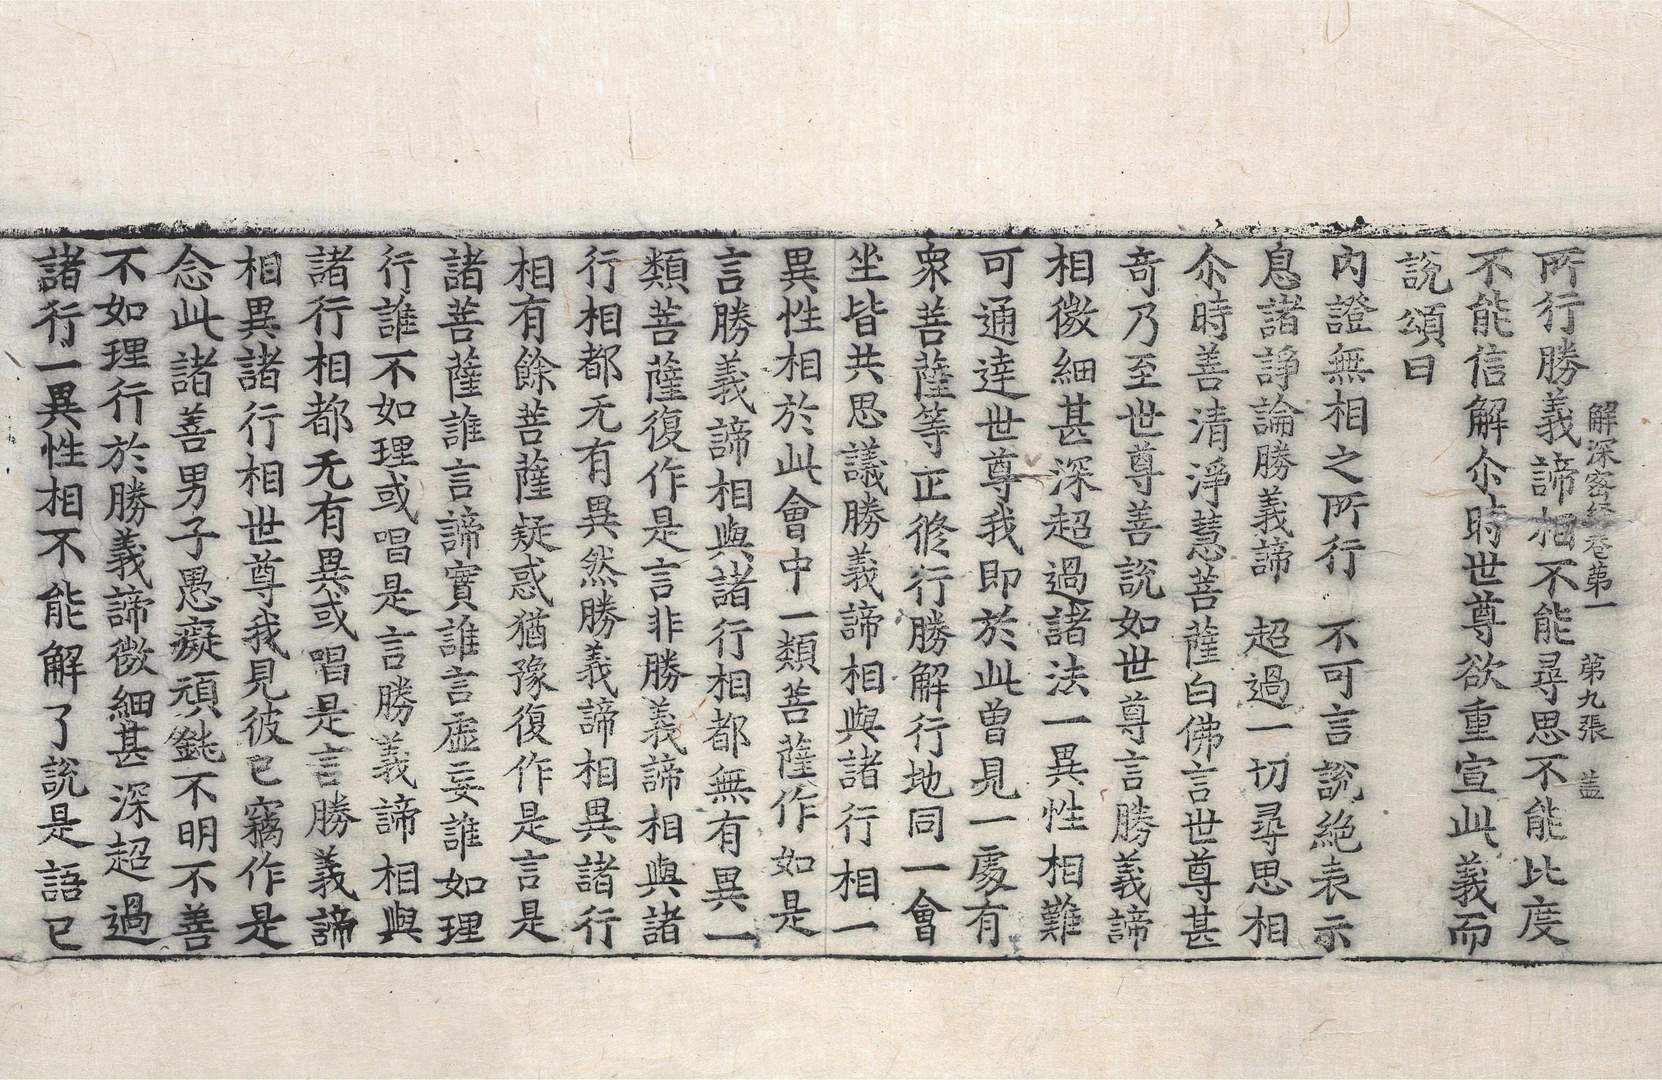 解深密經卷第一　第九張　盖
所行勝義諦相不能尋思不能比度
不能信解尒時世尊欲重宣此義而
說頌曰
內證無相之所行　不可言說絕表示
息諸諍論勝義諦　超過一切尋思相
尒時善清淨慧菩薩白佛言世尊甚
奇乃至世尊善說如世尊言勝義諦
相微細甚深超過諸法一異性相難
可通達世尊我即於此曾見一處有
衆菩薩等正修行勝解行地同一會
坐皆共思議勝義諦相與諸行相一
異性相於此會中一類菩薩作如是
言勝義諦相與諸行相都無有異一
類菩薩復作是言非勝義諦相與諸
行相都无有異然勝義諦相異諸行
相有餘菩薩疑惑猶豫復作是言是
諸菩薩誰言諦實誰言虛妄誰如理
行誰不如理或唱是言勝義諦相與
諸行相都无有異或唱是言勝義諦
相異諸行相世尊我見彼已竊作是
念此諸善男子愚癡頑鈍不明不善
不如理行於勝義諦微細甚深超過
諸行一異性相不能解了說是語已